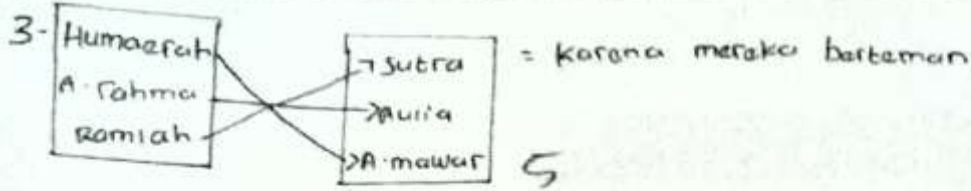 3- Humaerah
A. rahma
Ramlah
Sutra
Aulia
A. mawar
= karena mereka berteman
5